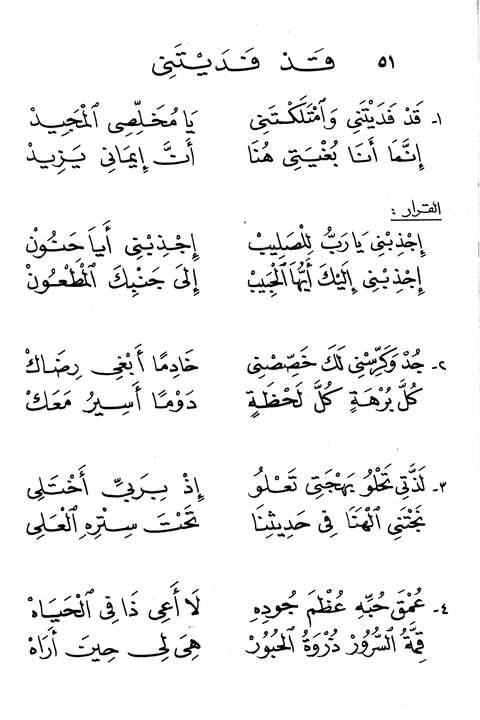 ٥١ قَدْ فَدَيْتَنِي
١- قَدْ فَدَيْتَنِي وَامْتَلَكْتَنِي يَا مُخَلِّصِي الْمَجِيدْ
إِنَّمَا أَنَا بُغْيَتِي هُنَا أَنَّ إِيمَانِي يَزِيدْ
القرار :
إِجْذِبْنِي يَا رَبُّ لِلْصَلِيبْ إِجْذِبْنِي أَيَا حَنُونْ
إِجْذِبْنِي إِلَيْكَ أَيُّهَا الْحَبِيبْ إِلَى جَنْبِكَ الْمَطْعُونْ
٢- جُدْ وَكَرِّسْنِي لَكَ خَصِّصْنِي خَادِمًا أَبْغِي رِضَاكْ
كُلَّ بُرْهَةٍ كُلَّ لَحْظَةٍ دَوْمًا أَسِيرُ مَعَكْ
٣- لَذَّتِي تَحْلُو بَهْجَتِي تَعْلُو إِذْ بِرَبِّي أَخْتَلِي
نَجْتَنِي الْهَنَا فِي حَدِيثِنَا تَحْتَ سِتْرِهِ الْعَلِي
٤- عُمْقَ حُبِّهِ عُظْمَ جُودِهِ لَا أَعِي ذَا فِي الْحَيَاهْ
قِمَّةُ السُّرُورْ ذُرْوَةُ الْحُبُورْ هِيَ لِي حِينَ أَرَاهْ